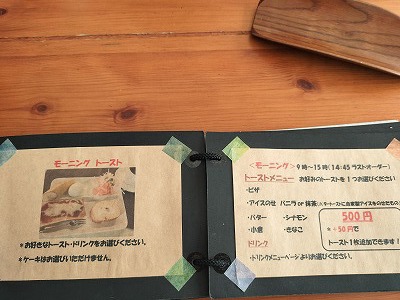 モーニング トースト
*お好きなトースト・ドリンクをお選びください。
*ケーキはお選びいただけません。
<モーニング> 9時~15時(14:45ラストオーダー)
トーストメニュー お好みのトーストを1つお選びください
・ピザ
・アイスのせ バニラor抹茶
・バター ・シナモン
・小倉 ・きなこ
500円
*+50円で
トースト1枚追加できます!
ドリンク
・ドリンクメニューページよりお選びください。